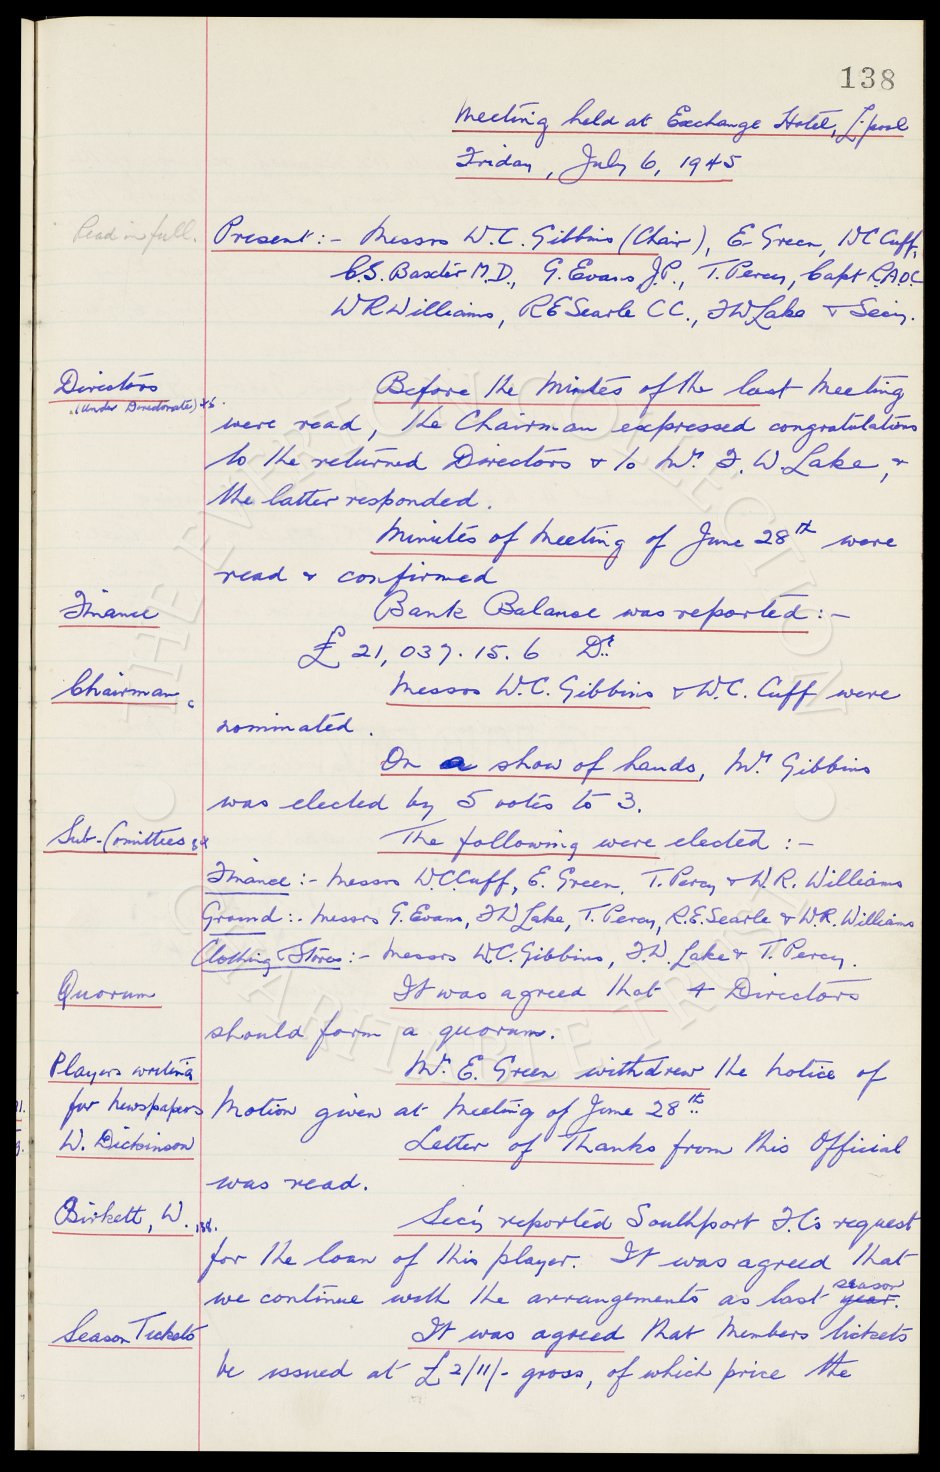 138
Meeting held at Exchange Hotel, L'pool
Friday, July 6, 1945
Read in full.
Present:- Messrs W.C. Gibbins (Chair), E. Green, W C Cuff,
C.S. Baxter M.D., G. Evans J.P., T. Percy, Capt R.A.O.C
W R Williams, R E Searle C C., F W Lake & Secy.
Directors
(Under Directorate) 46.
Before the Minutes of the last Meeting
were read, the Chairman expressed congratulations
to the returned Directors & to Mr. F. W. Lake, &
the latter responded.
Minutes of Meeting of June 28th were
read & confirmed
Finance
Bank Balance was reported:-
£ 21,037. 15. 6 Dr.
Chairman
Messrs W.C. Gibbins & W.C. Cuff were
nominated.
On a show of hands, Mr. Gibbins
was elected by 5 votes to 3.
Sub-Comittees
The following were elected:-
Finance:- Messrs W C Cuff, E. Green, T. Percy & W. R. Williams
Ground:- Messrs G. Evans, F W Lake, T. Percy, R. E. Searle & W. R. Williams
Clothing & Stores:- Messrs W.C. Gibbins, F. W. Lake & T. Percy.
Quorum
It was agreed that 4 Directors
should form a quorum.
Players writing
for Newspapers
Mr. E. Green withdrew the Notice of
Motion given at Meeting of June 28th.
W. Dickinson
Letter of Thanks from this Official
was read.
Birkett, W. 138.
Secy reported Southport F.C's request
for the loan of this player. It was agreed that
we continue with the arrangements as last year. season
Season Tickets
It was agreed that Members tickets
be issued at £2/11/- gross, of which price the
THE EVERTON COLLECTION
CHARITABLE TRUST